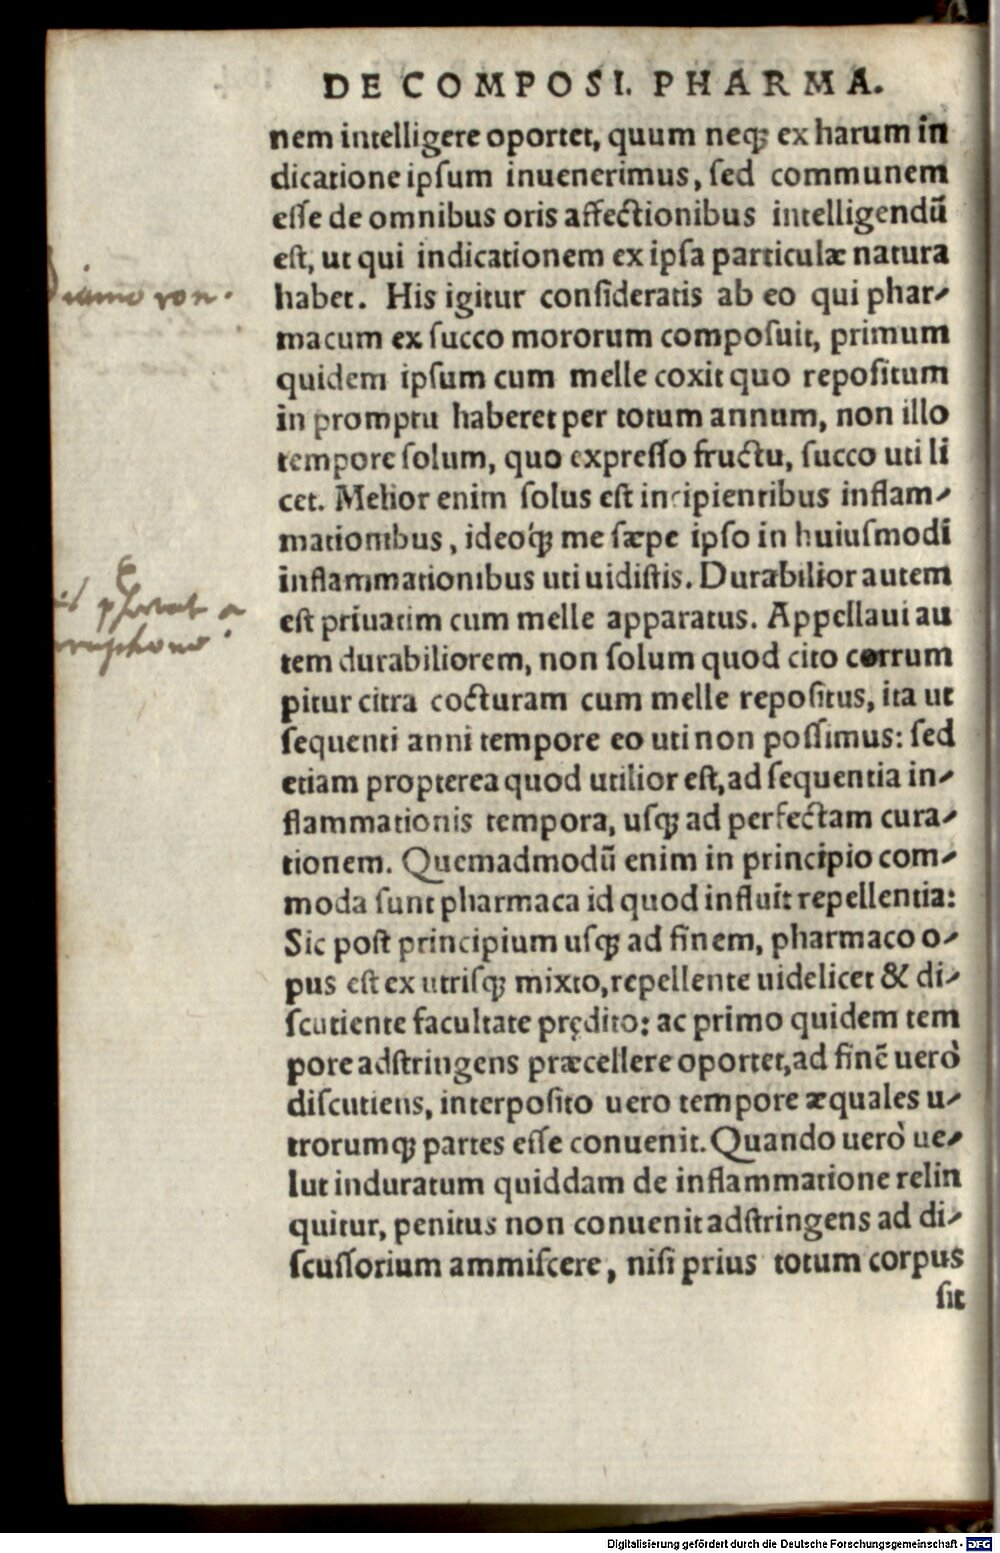 DE COMPOSI. PHARMA.
nem intelligere oportet, quum neq; ex harum in
dicatione ipſum inuenerimus, ſed communem
eſſe de omnibus oris affectionibus intelligendũ
eſt, ut qui indicationem ex ipſa particulæ natura
habet. His igitur conſideratis ab eo qui phar-
macum ex ſucco mororum compoſuit, primum
quidem ipſum cum melle coxit quo repoſitum
in promptu haberet per totum annum, non illo
tempore ſolum, quo expreſſo fructu, ſucco uti li
cet. Melior enim ſolus eſt incipientibus inflam-
mationibus, ideoq́; me ſæpe ipſo in huiuſmodi
inflammationibus uti uidiſtis. Durabilior autem
eſt priuatim cum melle apparatus. Appellaui au
tem durabiliorem, non ſolum quod cito corrum
pitur citra cocturam cum melle repoſitus, ita ut
ſequenti anni tempore eo uti non poſſimus: ſed
etiam propterea quod utilior eſt, ad ſequentia in-
flammationis tempora, uſq; ad perfectam cura-
tionem. Quemadmodũ enim in principio com-
moda ſunt pharmaca id quod influit repellentia:
Sic poſt principium uſq; ad finem, pharmaco o-
pus eſt ex utriſq; mixto, repellente uidelicet & di-
ſcutiente facultate prędito: ac primo quidem tem
pore adſtringens præcellere oportet, ad finẽ uerò
diſcutiens, interpoſito uero tempore æquales u-
trorumq; partes eſſe conuenit. Quando uerò ue-
lut induratum quiddam de inflammatione relin
quitur, penitus non conuenit adſtringens ad di-
ſcuſſorium ammiſcere, niſi prius totum corpus
ſit
Digitalisierung gefördert durch die Deutsche Forschungsgemeinschaft - DFG